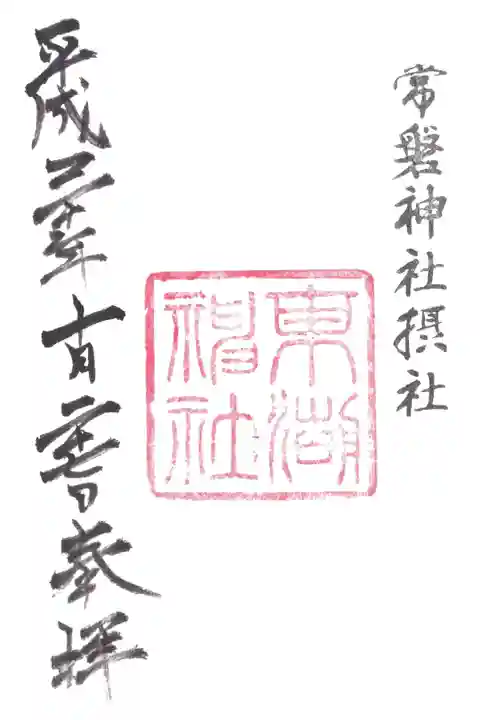 常磐神社摂社
東湖
神社
平成二十年十月二十日奉拝